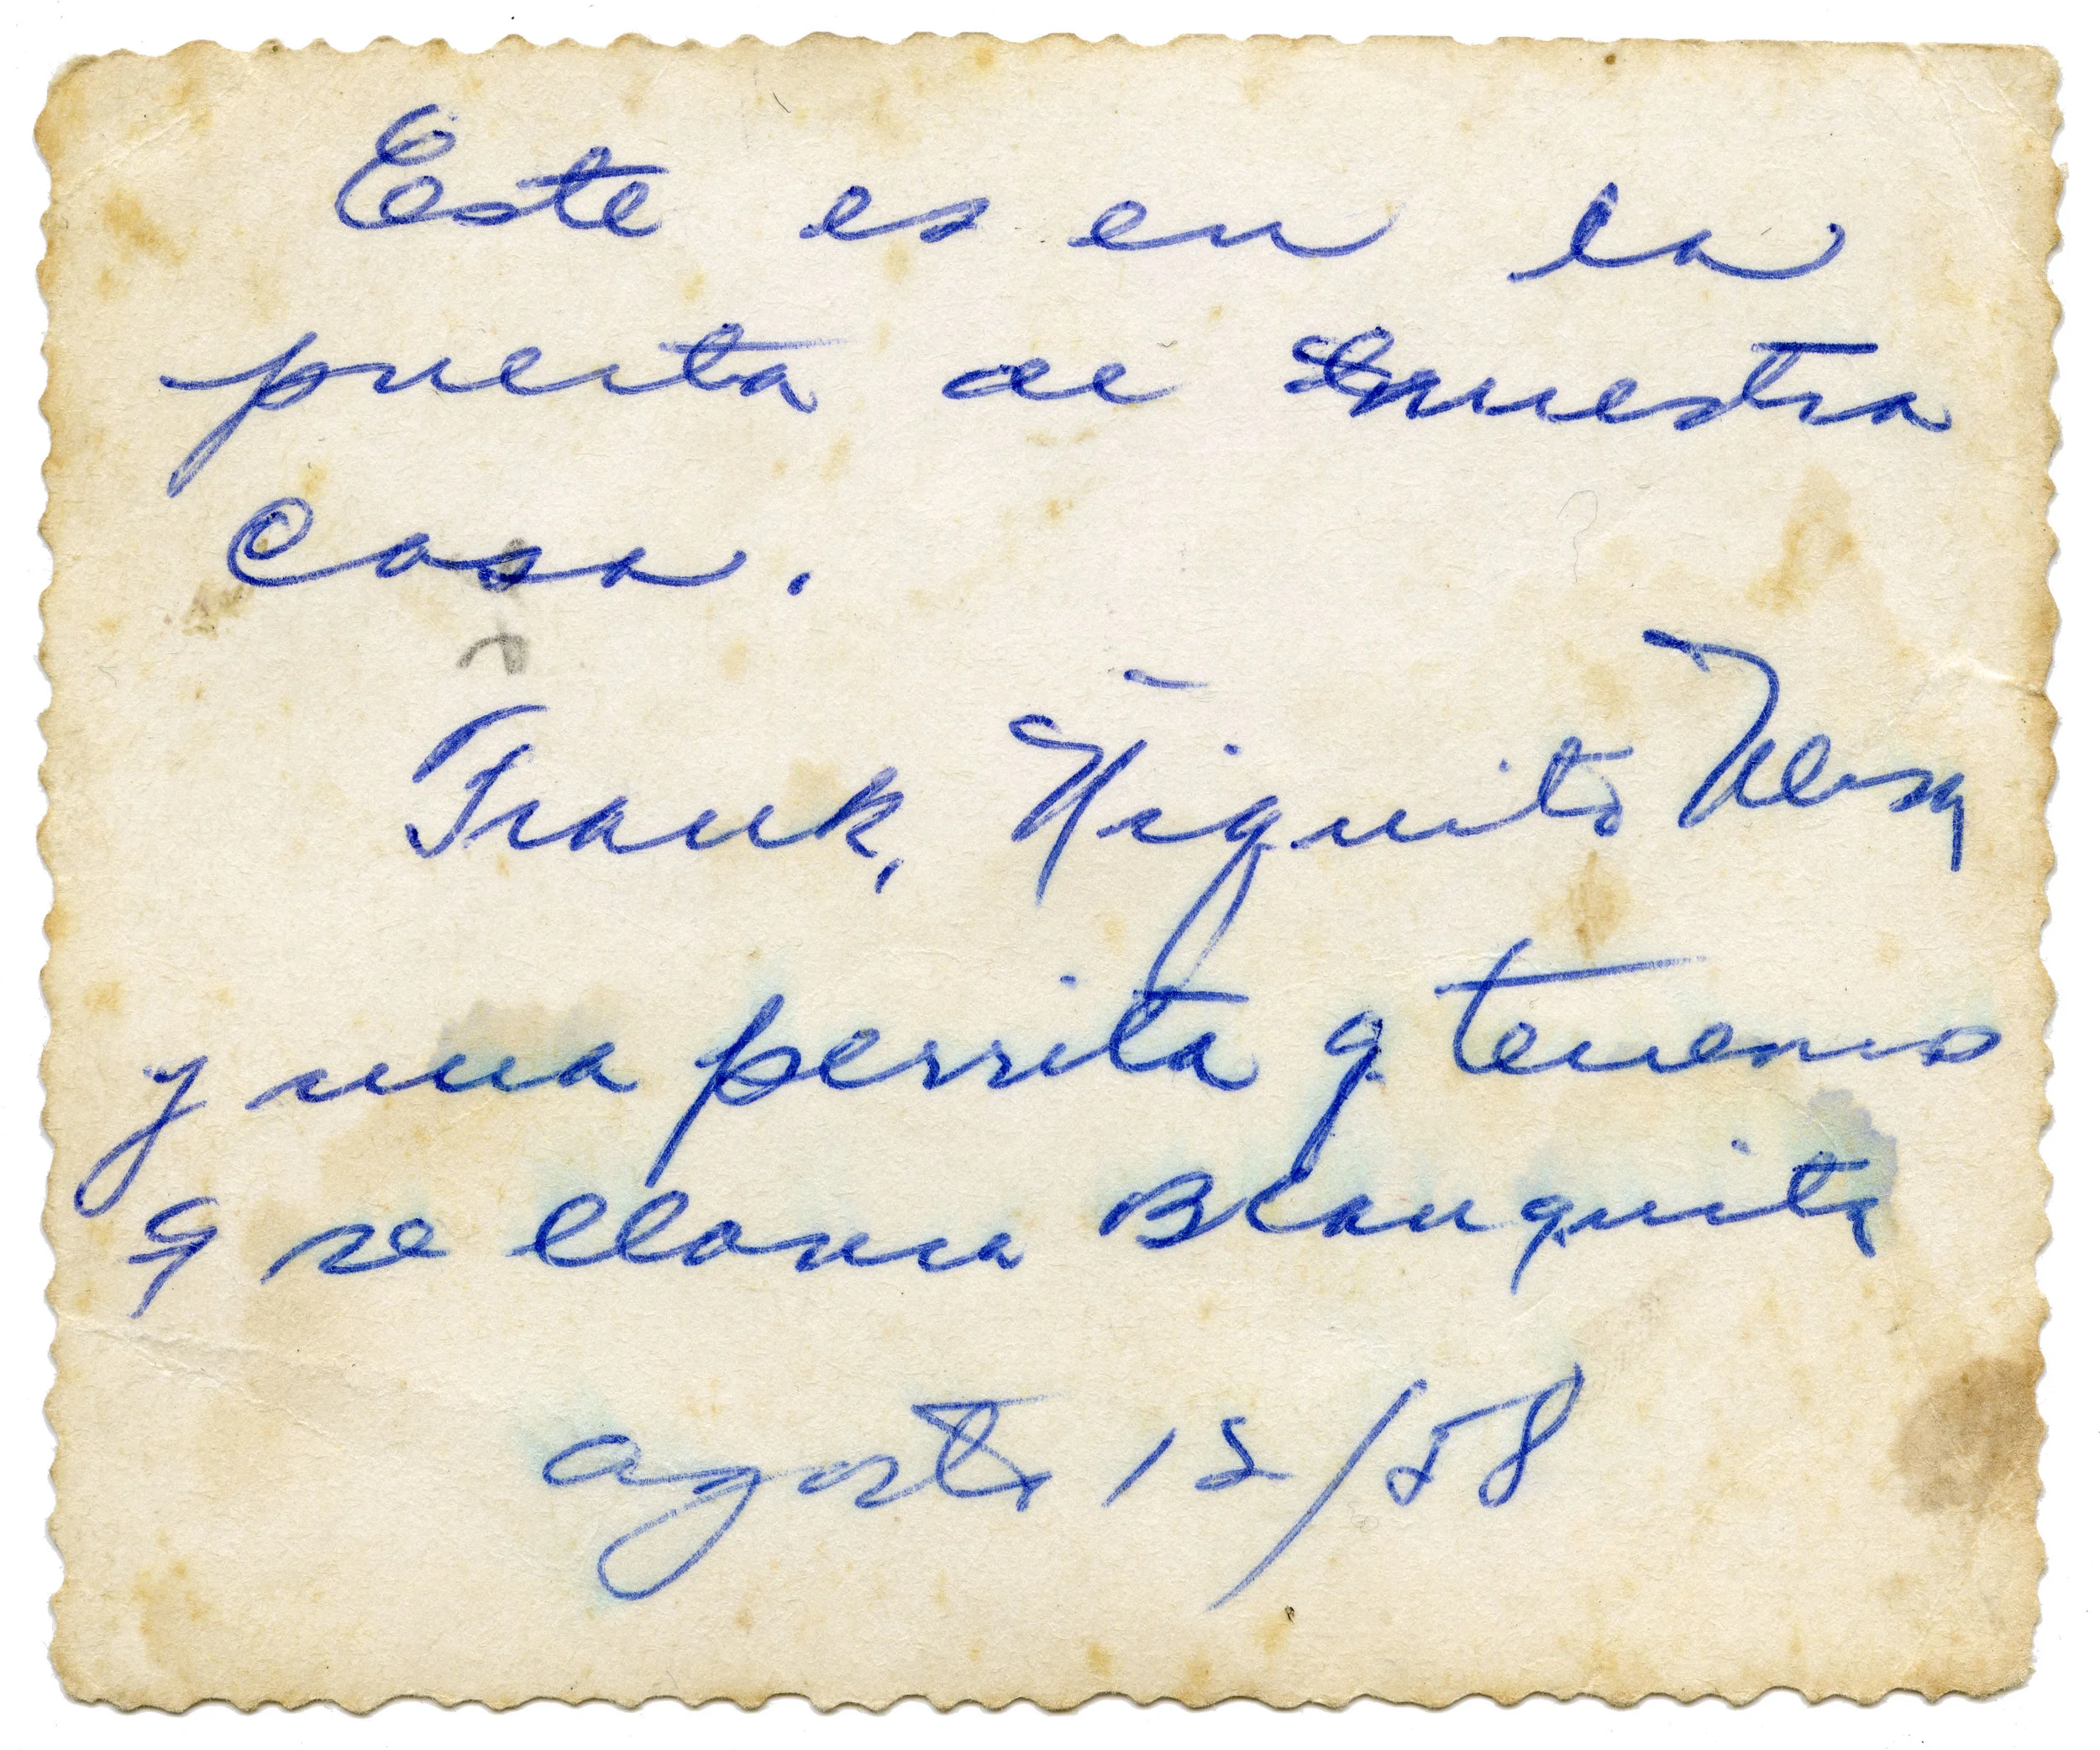 Este es en la
puerta de nuestra
Casa.
Frank, Ñiquito
y una perrita q tenemos
q se llama Blanquita
agosto 12/58